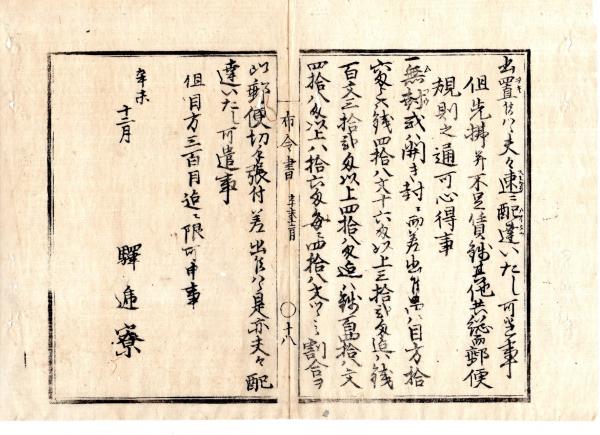 出置候ハヽ夫々速ニ配達いたし可申事
但先拂并不足賃錢其他共総而郵便
規則之通可心得事
一無封或ハ開き封ニ而差出候品ハ目方拾
六匁迄錢四拾八文十六匁以上三拾弐匁迄ハ錢
百文三拾弐匁以上四拾八匁迄ハ錢百四拾八文
四拾八匁以上ハ拾六匁毎ニ四拾八文ツヽ之割合ヲ
布令書 辛未十二月 〇十八
以郵便切手張付差出候ハヽ是亦夫々配
達いたし可遣事
但目方三百目迄ニ限可申事
辛未
十二月
驛遞寮